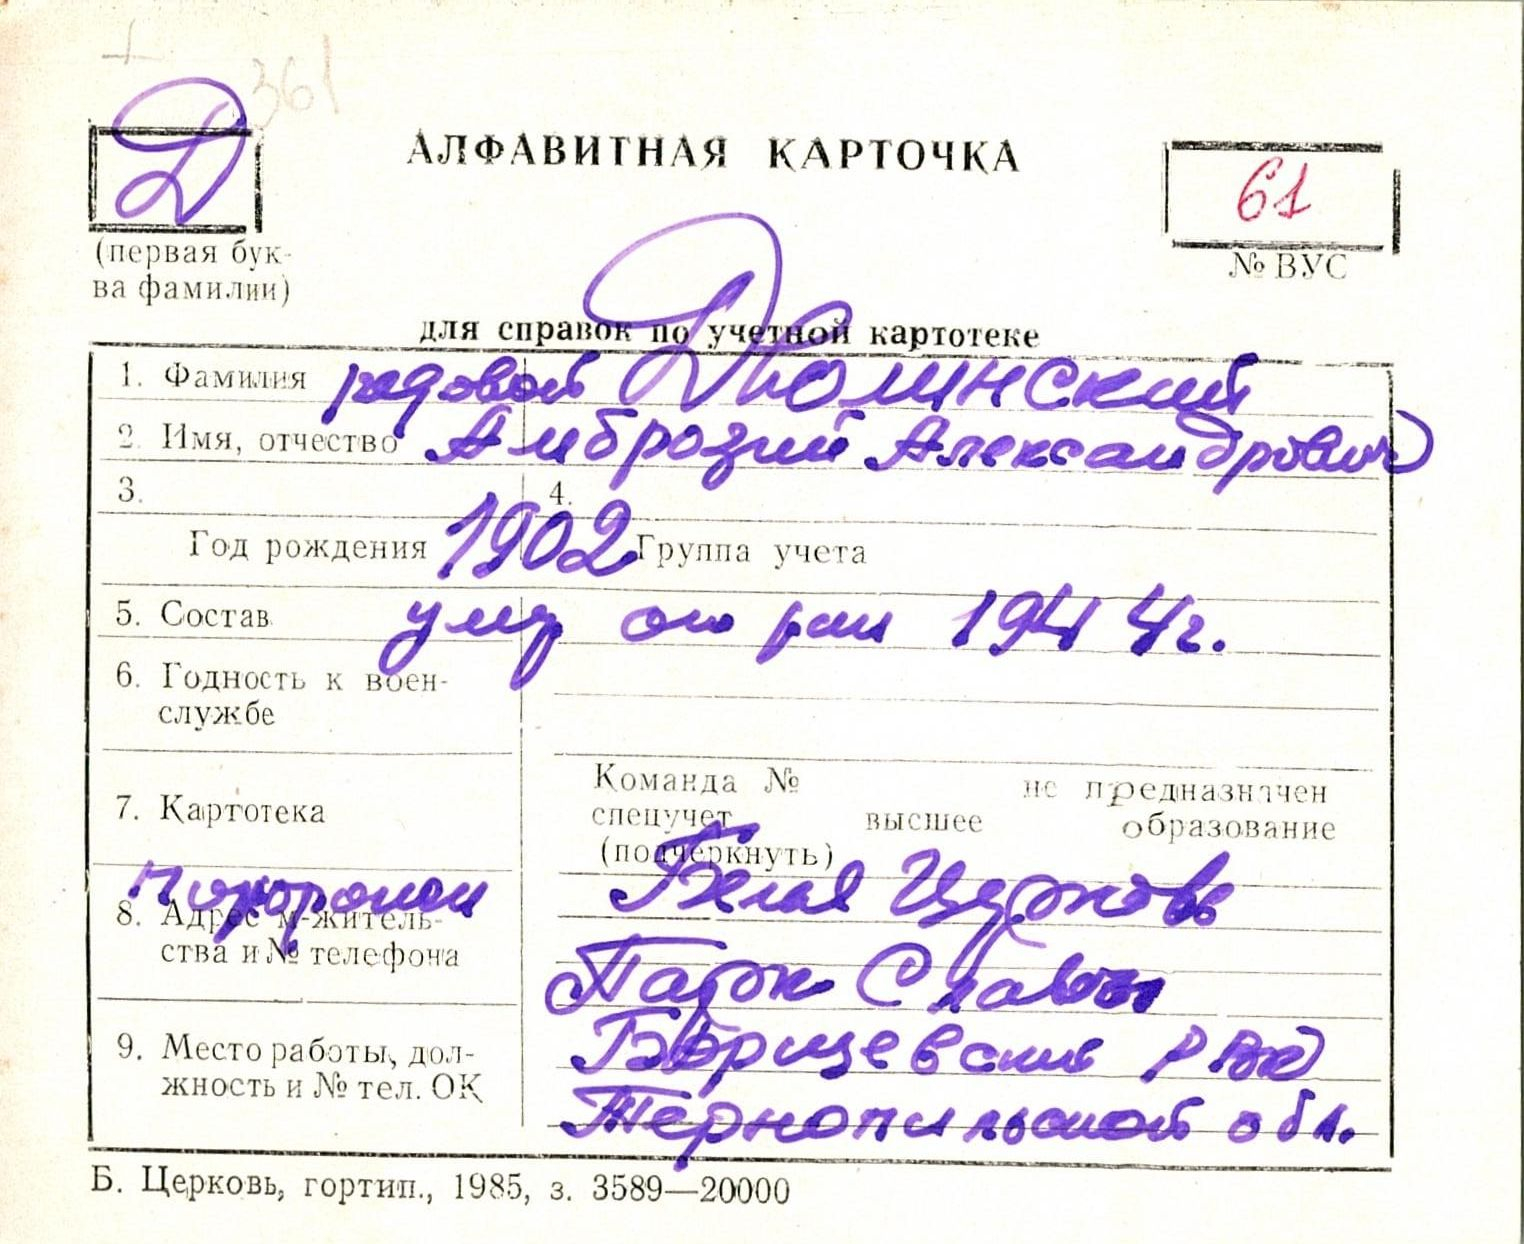 361
Д
АЛФАВИТНАЯ КАРТОЧКА
61
(первая бук-
ва фамилии)
№ ВУС
для справок по учетной картотеке
1. Фамилия рядовой Дюлинский
2. Имя, отчество Амброзий Александрович
3. 4.
Год рождения 1902 Группа учета
5. Состав умер от ран 1944г.
6. Годность к воен-
службе
7. Картотека
Команда № не предназначен
спецучет высшее образование
(подчеркнуть)
похоронен Белая Церковь
8. Адрес м-житель-
ства и № телефона
Парк Славы
9. Место работы, дол-
жность и № тел. ОК
Борщевский РВК
Тернопильской обл.
Б. Церковь, гортип., 1985, з. 3589—20000